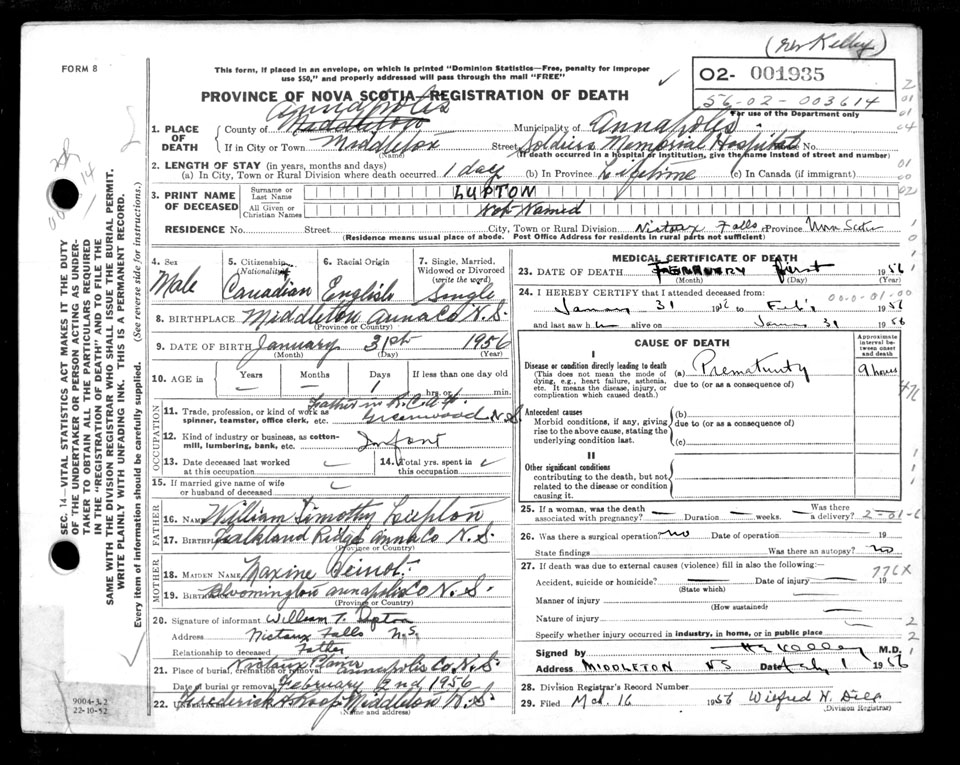 (res Kelley)
FORM 8
This form, if placed in an envelope, on which is printed "Dominion Statistics—Free, penalty for improper
use $50," and properly addressed will pass through the mail "FREE"
02- 001935
56-02-003614
For use of the Department only
PROVINCE OF NOVA SCOTIA—REGISTRATION OF DEATH
Annapolis
1. PLACE OF DEATH
County of Middleton
Municipality of Annapolis
If in City or Town Middleton
(Name)
Street Soldiers Memorial Hospital No.
(If death occurred in a hospital or institution, give the name instead of street and number)
2. LENGTH OF STAY (in years, months and days)
(a) In City, Town or Rural Division where death occurred 1 day (b) In Province Lifetime (c) In Canada (if immigrant)
3. PRINT NAME OF DECEASED
Surname or Last Name LUPTON
All Given or Christian Names Not Named
RESIDENCE No. Street City, Town or Rural Division Nictaux Falls Province Nova Scotia
(Residence means usual place of abode. Post Office Address for residents in rural parts not sufficient)
4. Sex Male
5. Citizenship (Nationality) Canadian
6. Racial Origin English
7. Single, Married, Widowed or Divorced (write the word) Single
8. BIRTHPLACE Middleton Anna Co N.S.
(Province or Country)
9. DATE OF BIRTH January 31st 1956
(Month) (Day) (Year)
10. AGE in Years Months Days If less than one day
— — 1 hrs. or min.
OCCUPATION
11. Trade, profession, or kind of work as spinner, teamster, office clerk, etc. Father in R.C.A.F. Greenwood N.S.
12. Kind of industry or business, as cotton-mill, lumbering, bank, etc. Infant
13. Date deceased last worked at this occupation
14. Total yrs. spent in this occupation
15. If married give name of wife or husband of deceased
FATHER
16. Name William Timothy Lupton
17. Birthplace Falkland Ridge Anna Co N.S.
(Province or Country)
MOTHER
18. Maiden Name Maxine
19. Birthplace Bloomington Annapolis Co N.S.
(Province or Country)
20. Signature of informant William T. Lupton
Address Nictaux Falls N.S.
Relationship to deceased Father
21. Place of burial, cremation or removal Nictaux Annapolis Co N.S.
Date of burial or removal February 2nd 1956
22. Undertaker Frederick Middleton N.S.
(Name and address)
MEDICAL CERTIFICATE OF DEATH
23. DATE OF DEATH FEBRUARY first 1956
(Month) (Day)
24. I HEREBY CERTIFY that I attended deceased from:
000-01-00
January 31 1956 to Feb 1 1956
and last saw h alive on January 31 1956
CAUSE OF DEATH
Approximate interval between onset and death
I
Disease or condition directly leading to death
(This does not mean the mode of dying, e.g., heart failure, asthenia, etc. It means the disease, injury, or complication which caused death.)
(a) Prematurity 9 hours
due to (or as a consequence of)
Antecedent causes
Morbid conditions, if any, giving rise to the above cause, stating the underlying condition last.
(b)
due to (or as a consequence of)
(c)
II
Other significant conditions
contributing to the death, but not related to the disease or condition causing it.
25. If a woman, was the death associated with pregnancy? — Duration — weeks. Was there a delivery?
26. Was there a surgical operation? no Date of operation 19
State findings Was there an autopsy? no
27. If death was due to external causes (violence) fill in also the following:—
776X
Accident, suicide or homicide? Date of injury 19
(State which)
Manner of injury
(How sustained)
Nature of injury
Specify whether injury occurred in industry, in home, or in public place
Signed by H E Kelley M.D.
Address MIDDLETON NS Date Feb 1 1956
28. Division Registrar's Record Number
29. Filed Mar. 16 1956 Wilfred N.
(Division Registrar)
SEC. 14—VITAL STATISTICS ACT MAKES IT THE DUTY
OF THE UNDERTAKER OR PERSON ACTING AS UNDER-
TAKER TO OBTAIN ALL THE PARTICULARS REQUIRED
IN THE "REGISTRATION OF DEATH" AND TO FILE THE
SAME WITH THE DIVISION REGISTRAR WHO SHALL ISSUE THE BURIAL PERMIT.
WRITE PLAINLY WITH UNFADING INK. THIS IS A PERMANENT RECORD.
Every item of information should be carefully supplied. (See reverse side for instructions.)
9004-3.2
22-10-52